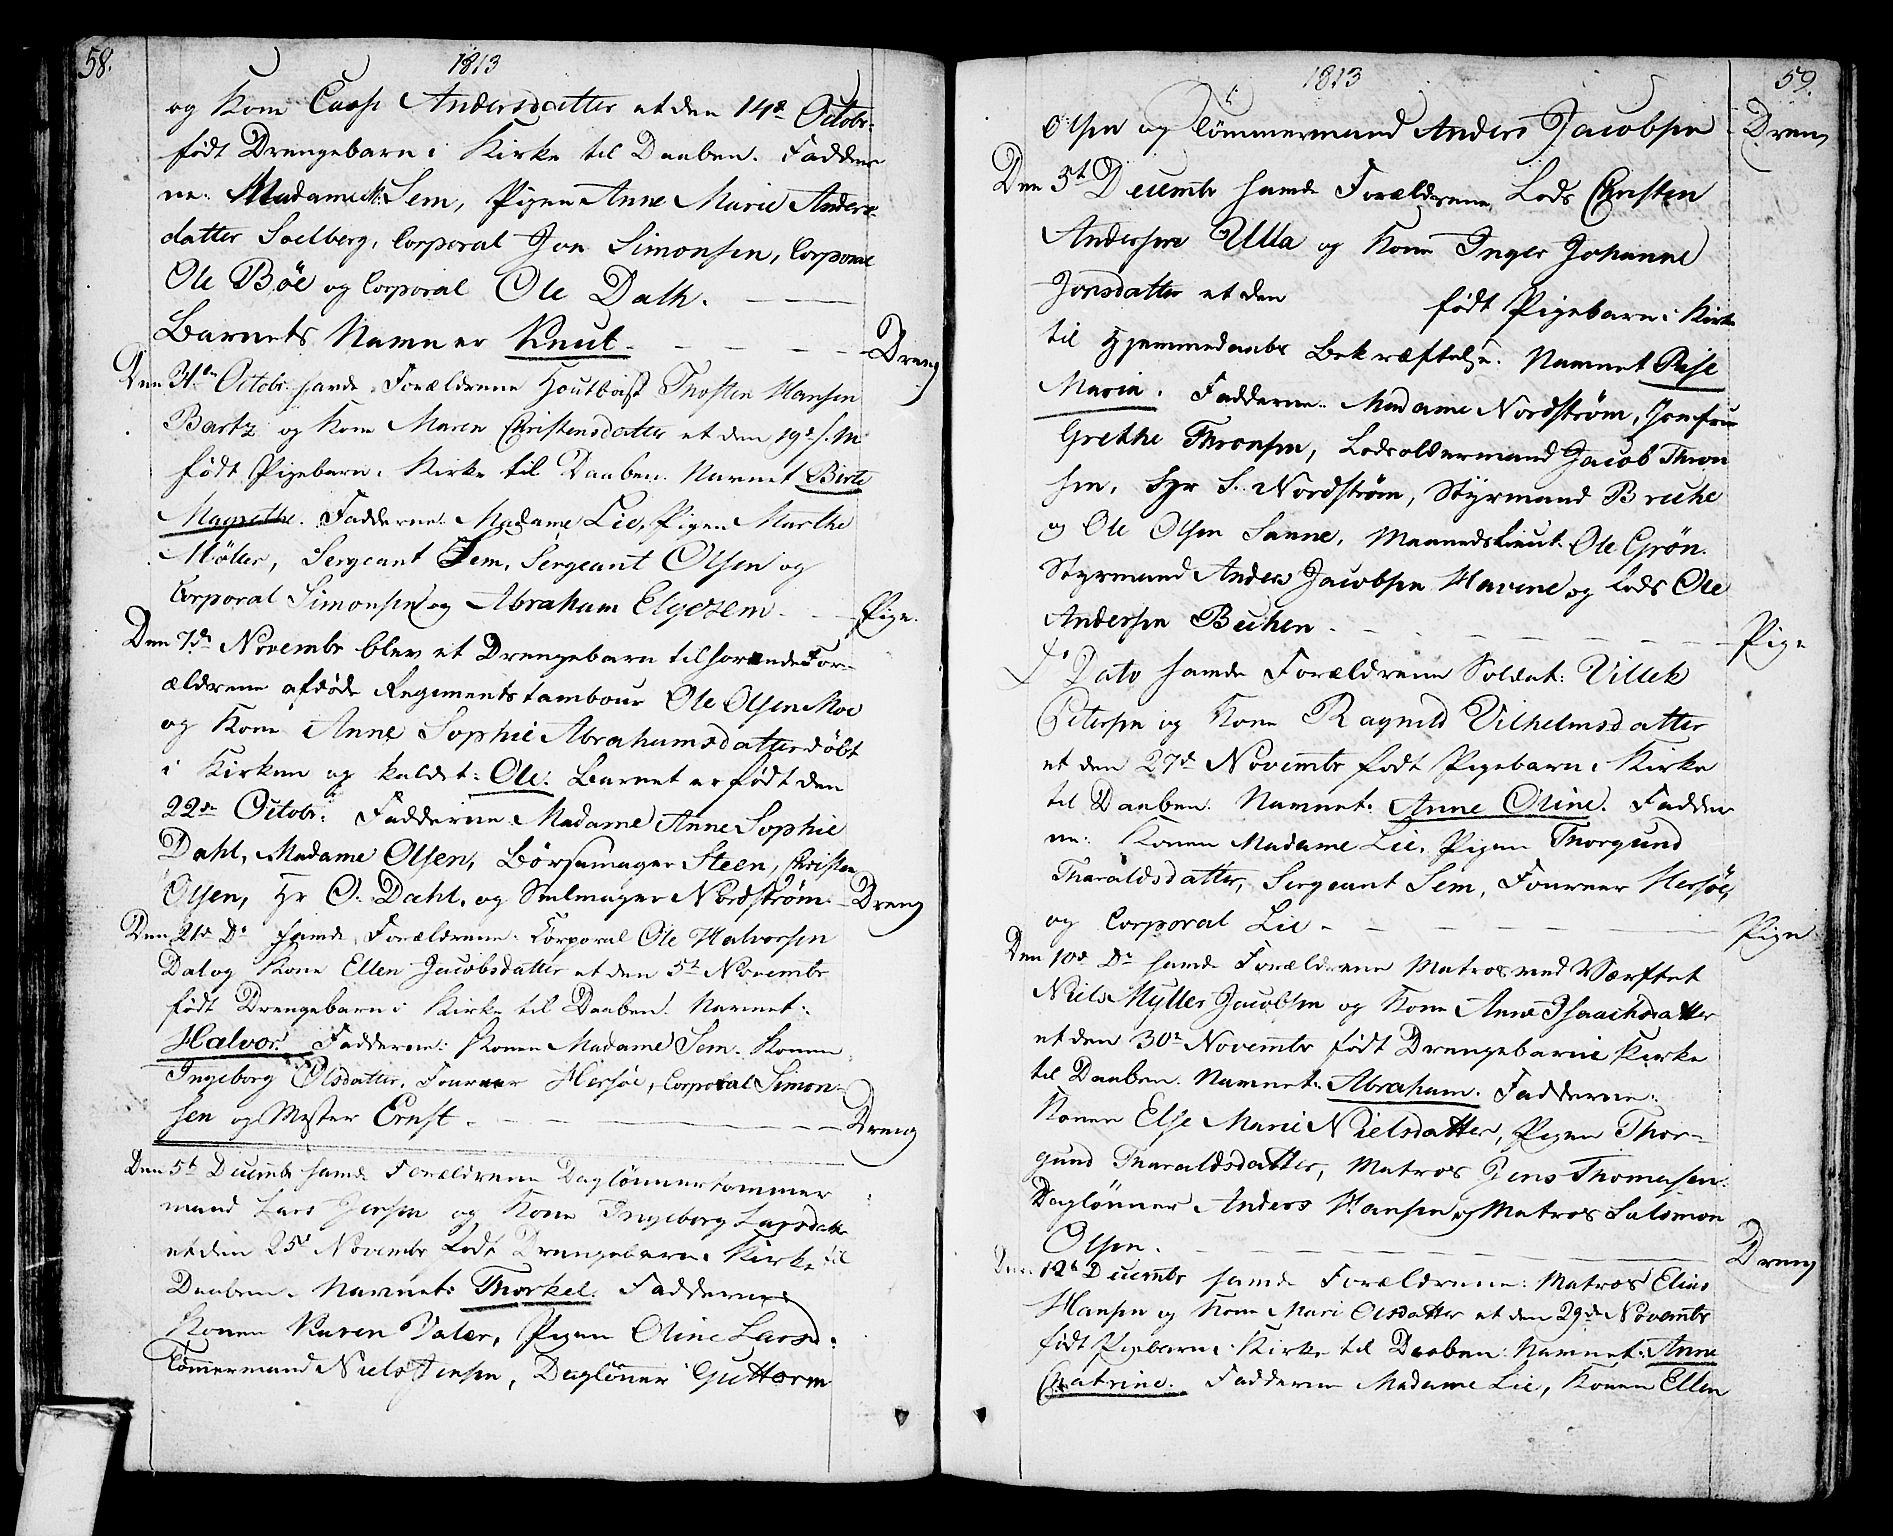 58.
1813
og Kone Andersdatter et den 14de Octobr:
født Drengebarn i Kirke til Daaben. Fadder
ne: Madame M: Sem, Pigen Anne Marie Anders
datter Soelberg, Corporal Jon Simonsen, Corporal
Ole Böe og Corporal Ole Dath.
Barnets Namn er Knut. Dreng
Den 31te Octobr: havde Forældrene Houtboist Thosten Hansen
Bartz og Kone Maren Christensdatter et den 19de s. M:
født Pigebarn i Kirke til Daaben. Navnet Birte
Magrethe. Fadderne: Madame Lie, Pigen Marthe
Möller, Sergeant Sem, Sergeant Olsen og
Corporal Simonsen og Abraham Elgezem. Pige.
Den 7de Novembr blev et Drengebarn tilhørende For-
ældrene afdøde Regimentstambour Ole Olsen Moe
og Kone Anne Sophie Abrahamsdatter døbt
i Kirken og kaldet: Ole. Barnet er født den
22de Octobr: Fadderne: Madame Anne Sophie
Dahl, Madame Olsen, Börsemager Steen, Christen
Olsen, Hr O. Dahl, og Seilmager Nordström. Dreng
Den 21de Do havde Forældrene: Corporal Ole Halvorsen
Dal og Kone Ellen Jacobsdatter et den 5t Novembr
født Drengebarn i Kirke til Daaben. Navnet:
Halvor. Fadderne: Konen Madame Sem. Konen
Ingeborg Olsdatter, Foureer Hersöe, Corporal Simon-
sen og Mester Ernst. Dreng
Den 5t Decembr havde Forældrene Daglönnertömmer
mand Lars Jensen og Kone Ingeborg Larsdatter
et den 25de Novembr født Drengebarn i Kirke til
Daaben. Navnet: Thorkel. Fadderne:
Konen Karen Valer, Pigen Oline Larsd:
Tömmermand Niels Jensen, Daglönner Guttorm
1813
59.
Olsen og Tömmermand Anders Jacobsen Dreng
Den 5t Decembr havde Forældrene Lods Christen
Andersen Ulla og Kone Inger Johanne
Jonsdatter et den født Pigebarn i Kirke
til Hjemmedaabs Bekræftelse. Navnet
Maria. Fadderne: Madame Nordström, Jomfru
Grethe Thronsen, Lodsoldermand Jacob Thron
sen, Hr S. Nordström, Styrmand
og Ole Olsen Sanne, Maaneds Lieut. Ole Grön.
Styrmand Anders Jacobsen Havene og Lods Ole
Andersen Buchen. Pige
Do Dato havde Forældrene Soldat: Villek
Petersen og Kone Ragnild Vilhelmsdatter
et den 27de Novembr født Pigebarn i Kirke
til Daaben. Navnet: Anne Oline. Fadder
ne: Konen Madame Lie, Pigen Thorgund
Tharaldsdatter, Sergeant Sem, Foureer Hersöe,
og Corporal Lie. Pige
Den 10de Do havde Forældrene Matros ved Værftet
Niels Myller Jacobsen og Kone Anne Isaachsdatter
et den 30te Novembr født Drengebarn i Kirke
til Daaben. Navnet: Abraham. Fadderne:
Konen Else Marie Nielsdatter, Pigen Thor-
gund Tharaldsdatter, Matros Jens Thomesen.
Daglönner Anders Hansen og Matros Salomon
Olsen. Dreng
Den 12te Decembr havde Forældrene: Matros Elias
Hansen og Kone Mari Olsdatter et den 29de Novembr
født Pigebarn i Kirke til Daaben: Navnet: Anne
Catrine. Fadderne Madame Lie, Konen Ellen